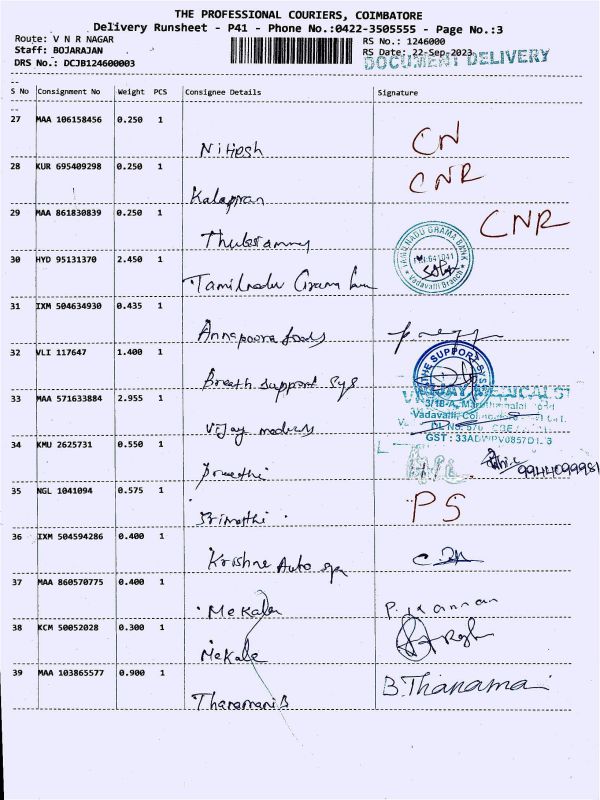 THE PROFESSIONAL COURIERS, COIMBATORE
Delivery Runsheet - P41 - Phone No.:0422-3505555 - Page No.:3
Route: V N R NAGAR
RS No.: 1246000
Staff: BOJARAJAN
RS Date: 22-Sep-2023
DRS No.: DCJB124600003
DOCUMENT DELIVERY
S No Consignment No Weight PCS Consignee Details Signature
27 MAA 106158456 0.250 1
Nitiesh CN
28 KUR 695409298 0.250 1
Kalapiran CNR
29 MAA 861830839 0.250 1
CNR
30 HYD 95131370 2.450 1
TAMIL NADU GRAMA BANK
641041
Vadavalli Branch
Tamilnadu Grama
31 IXM 504634930 0.435 1
Annapoora foods
32 VLI 117647 1.400 1
THE SUPPORT SYS
Breath support sys
33 MAA 571633884 2.955 1
VIJAY MEDICAL
3/18-A,
Vadavalli,
GST : 33
Vijay
34 KMU 2625731 0.550 1
9944099981
35 NGL 1041094 0.575 1
Srimathi PS
36 IXM 504594286 0.400 1
Krishna Auto spa
37 MAA 860570775 0.400 1
Mekala P. Kannan
38 KCM 50052028 0.300 1
Mekala
39 MAA 103865577 0.900 1
Thanamani B B. Thanamai